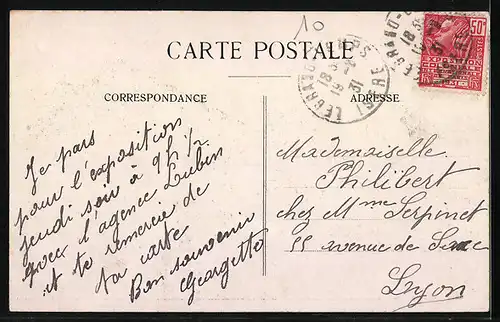 10
CARTE POSTALE
CORRESPONDANCE
ADRESSE
50c
POSTES
EXPOSITION
COLONIALE
INTERNATIONALE
PARIS
LE GRAND-
18 35
19 -
31
ISERE
LE GRAND-
18 35
Je pars
pour l'exposition
jeudi soir à 9h ½
avec l'agence Lubin
et te remercie de
ta carte
Bon souvenir
Georgette
Mademoiselle
Philibert
chez Mme Serpinet
55 avenue de Saxe
Lyon